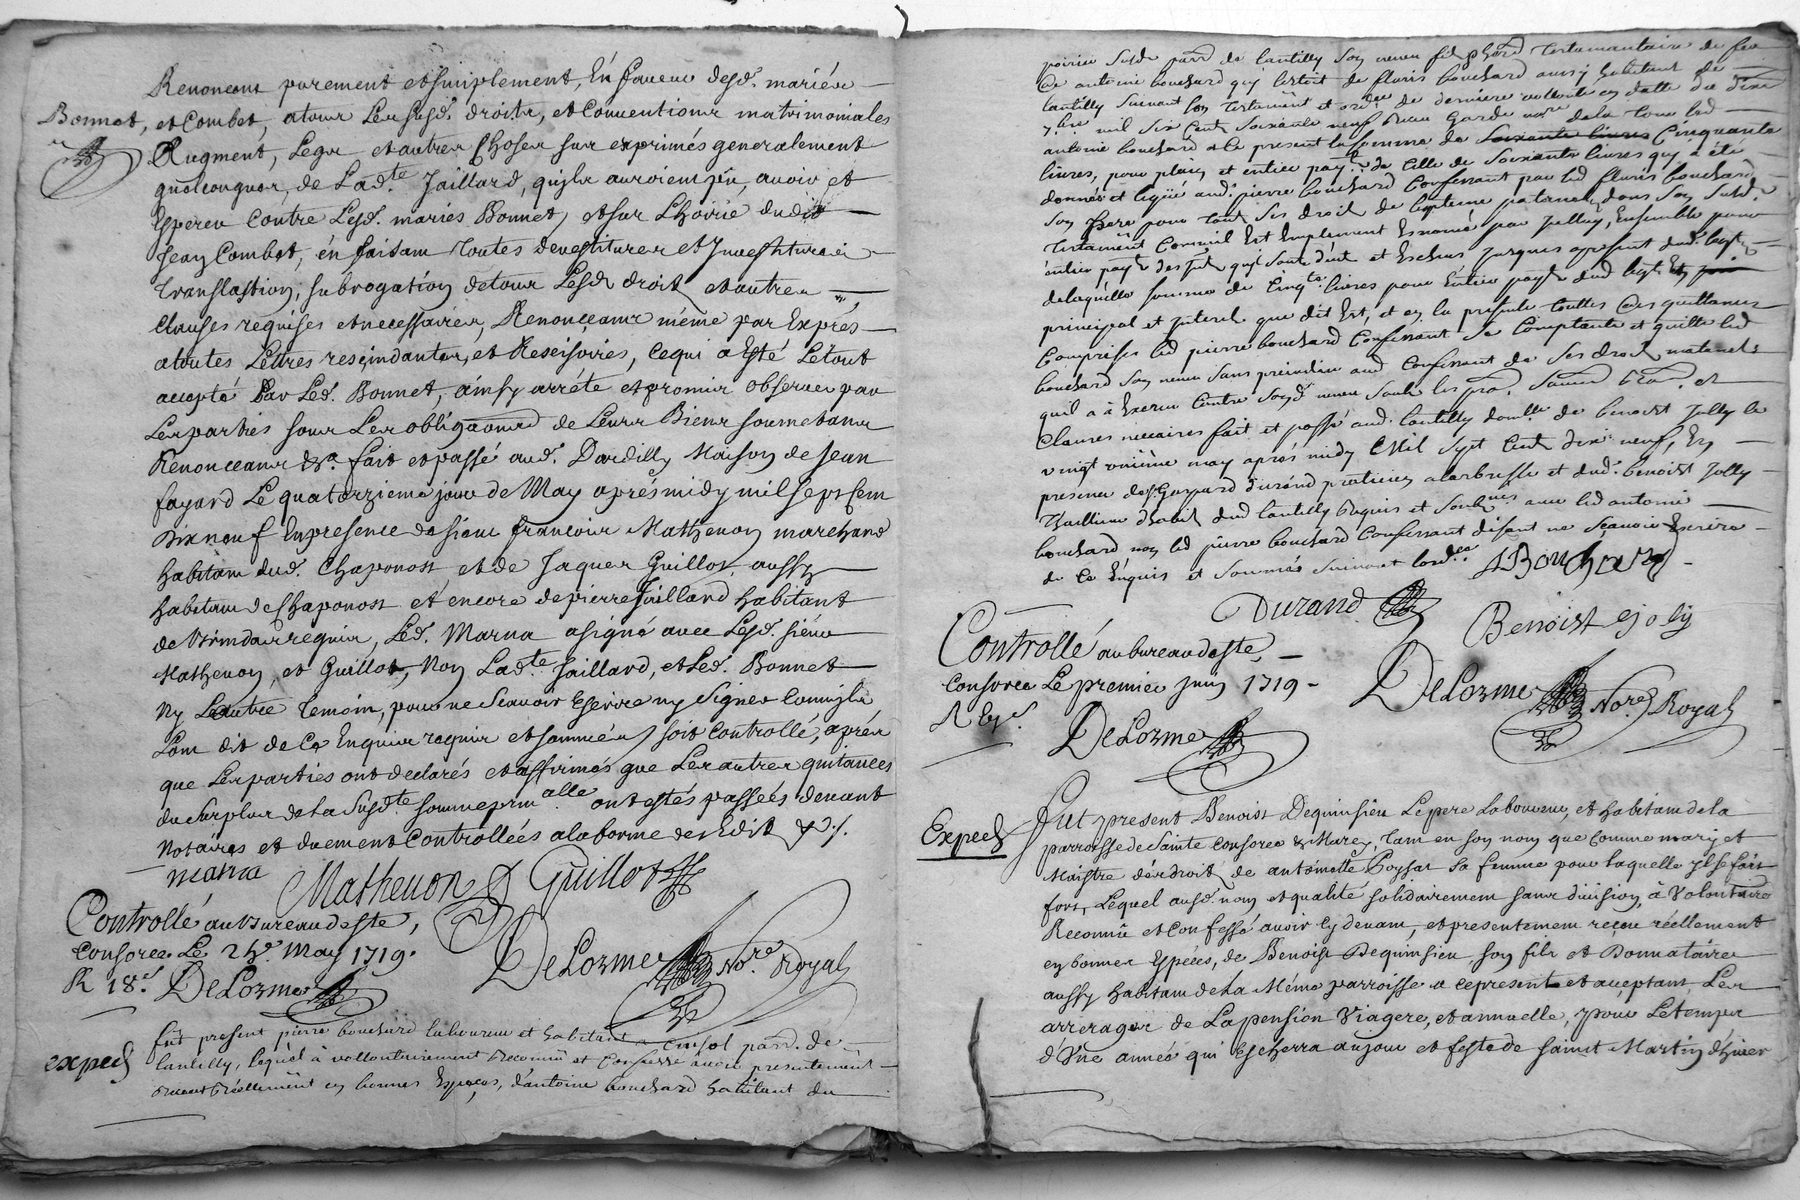 Renoncent purement et simplement, En faveur desd. mariés
Bonnet, et Combet, a tous Les susd. droits, et Conventions matrimoniales
Augment, Legs et autres Choses sur exprimés generalement
quelconques, de Lad.te Jaillard, qu'ils auroient peu, avoir et
Esperer Contre Lesd. mariés Bonnet, et sur L'hoirie dudit
Jean Combet, én faisant toutes devestitures et Investitures
Translation, subrogation de tous Lesd. droits et autres
Clauses requises et necessaires, Renonçeant même par Exprés
a toutes Lettres rescindantes, et Rescisoires, Ce qui a Esté Le tout
accepté Par Led. Bonnet, ainsy arrété et promis observer par
Les parties sous Les obligaõns de Leurs Biens soumetans
Renonceans &a. fait et passé aud. Dardilly Maison de Jean
fayard Le quatorzieme jour de May aprés midy mil sept cent
Dix neuf En presence de sieur francois Mathevon marchand
habitant dud. Chaponost et de Jaques Guillot, aussy
habitant de Chaponost et éncore de pierre Jaillard habitant
de Brindas requis, Led. Marna a signé avec Lesd. sieurs
Mathevon, et Guillot, Non Lad.te Jaillard, et Led. Bonnet
Ny Lautre Temoin, pour ne Scavoir Escrire ny Signer Comm'ils
L'ont dit de Ce Enquis requis et sommés soit Controllé, aprés
que Les parties ont declarés et affirmés que Les autres quitances
du surplus de La Susd.te somme prin.alle ont estés passées devant
Notaires et duement Controllées a la forme des Edits &a.
marna Mathevon Guillot
Controllé au Bureau de Ste,
Consorce Le 24e. May 1719.
R 18s. DeLorme
DeLorme No.re Royal
exped
fut present pierre bouchard laboureur et habitant a Cuisol parr. de
Lantilly, lequel à vollontairement Reconnü et Confessé avoir presentement
Receu Réellement en bonnes Especes, d'antoine bouchard habitant du
poirier susd. parr. de lantilly son neveu fils heritier Testamentaire de feu
antoine bouchard qui lestoit de fleuris bouchard aussy habitant de
lantilly suivant son Testament et ordre de derniere vollonté en datte du dix
7bre mil six Cent Soixante neuf Receu Garde no.re de la Tour led.
antoine bouchard a Ce present la somme de Soixante livres Cinquante
livres, pour plain, et entier payt. de Celle de Soixante livres qui à été
donnés et legüé aud. pierre bouchard Confessant par led. fleuris bouchard
Son Pere pour Tous Ses droits de legitime paternels dans Son Susd.
Testament Comme il Est Emplement Enoncé par Jcelluy, Ensemble pour
entier payt. des Jnts. qui sont dûs et Escheus Jusques apresent dud. legt.
de laquelle somme de Cinqte. livres pour Entier payt. dud. legt. En prin
principal et Jnterest que dit Est, et en la presente toutes autres quittances
Comprises led. pierre bouchard Confessant Se Comptante et quitte led.
bouchard Son neveu sans preiudice aud. Confessant de Ses droits maternels
quil a à Exercer Contre Sond. neveu
Clauses necaires fait et passé aud. lantilly domille de benoist Jolly le
vingt uniéme may aprés midy Mil Sept Cent dix neuf, En
presence de Sr. Gaspard Durand praticien a larbresle et dud. benoist Jolly
Tailleur d'habit dud. lantilly Requis et Soubsnés avec led. antoine
bouchard non led. pierre bouchard Confessant disant ne Scavoir Escrire
de Ce Enquis et Sommés Suivant lord.ce ABouchard
Durand
Benoist Joly
Controllé au bureau de Ste,
Consorce Le premier Juin 1719
DeLorme
DeLorme No.re Royal
Exped
Fut present Benoist Dequinsieu Le pere Laboureur, et habitant de la
parroisse de Sainte Consorce & Marcy, Tant en son nom que Comme mary et
Maistre dés droits de antoinette Poyssat Sa femme pour Laquelle Jl se fait
fort, Lequel ausd. nom et qualité solidairement sans division, à Volontaire
Reconnû et Confessé avoir Cy devant, et presentement receu réellement
en bonnes Espéces, de Benoist Dequinsieu son fils et Donnataire
aussy habitant de La Méme parroisse a Ce present et acceptant, Les
arrerages de La pension Viagere, et annuelle, pour Le temps
d'Une année qui Escherra au jour et feste de Saint Martin d'hiver